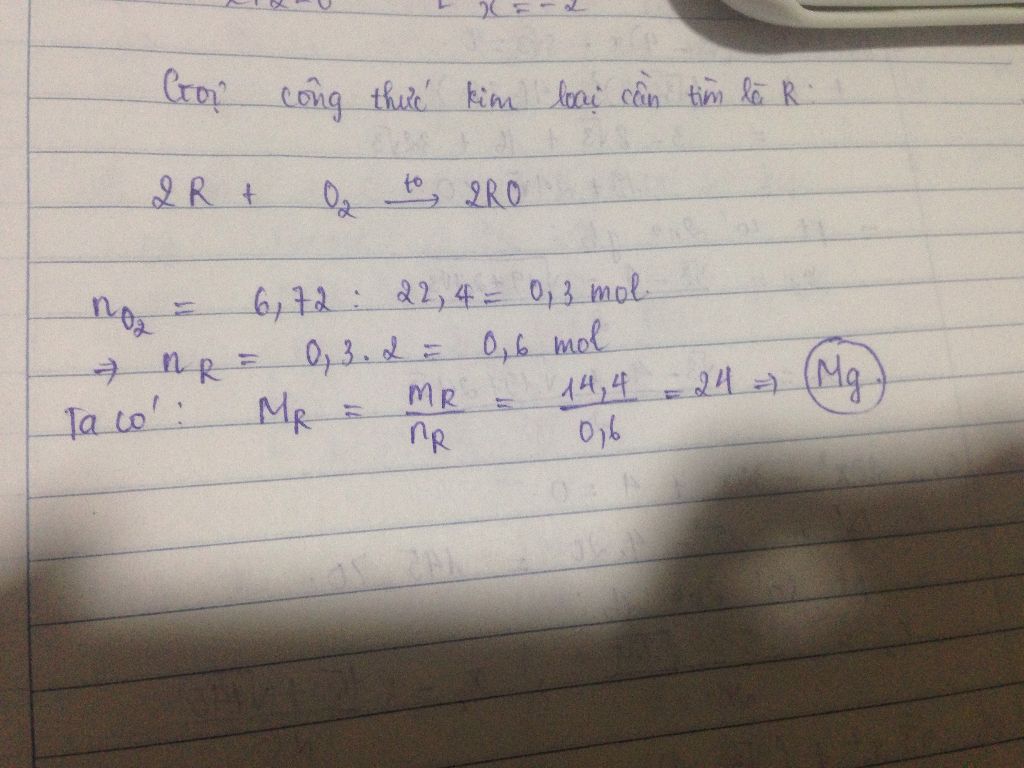 x = -2
Gọi công thức kim loại cần tìm là R:
2R + O₂ →(t°) 2RO
n_O₂ = 6,72 : 22,4 = 0,3 mol.
⇒ n_R = 0,3.2 = 0,6 mol
Ta có: M_R = m_R/n_R = 14,4/0,6 = 24 ⇒ Mg.